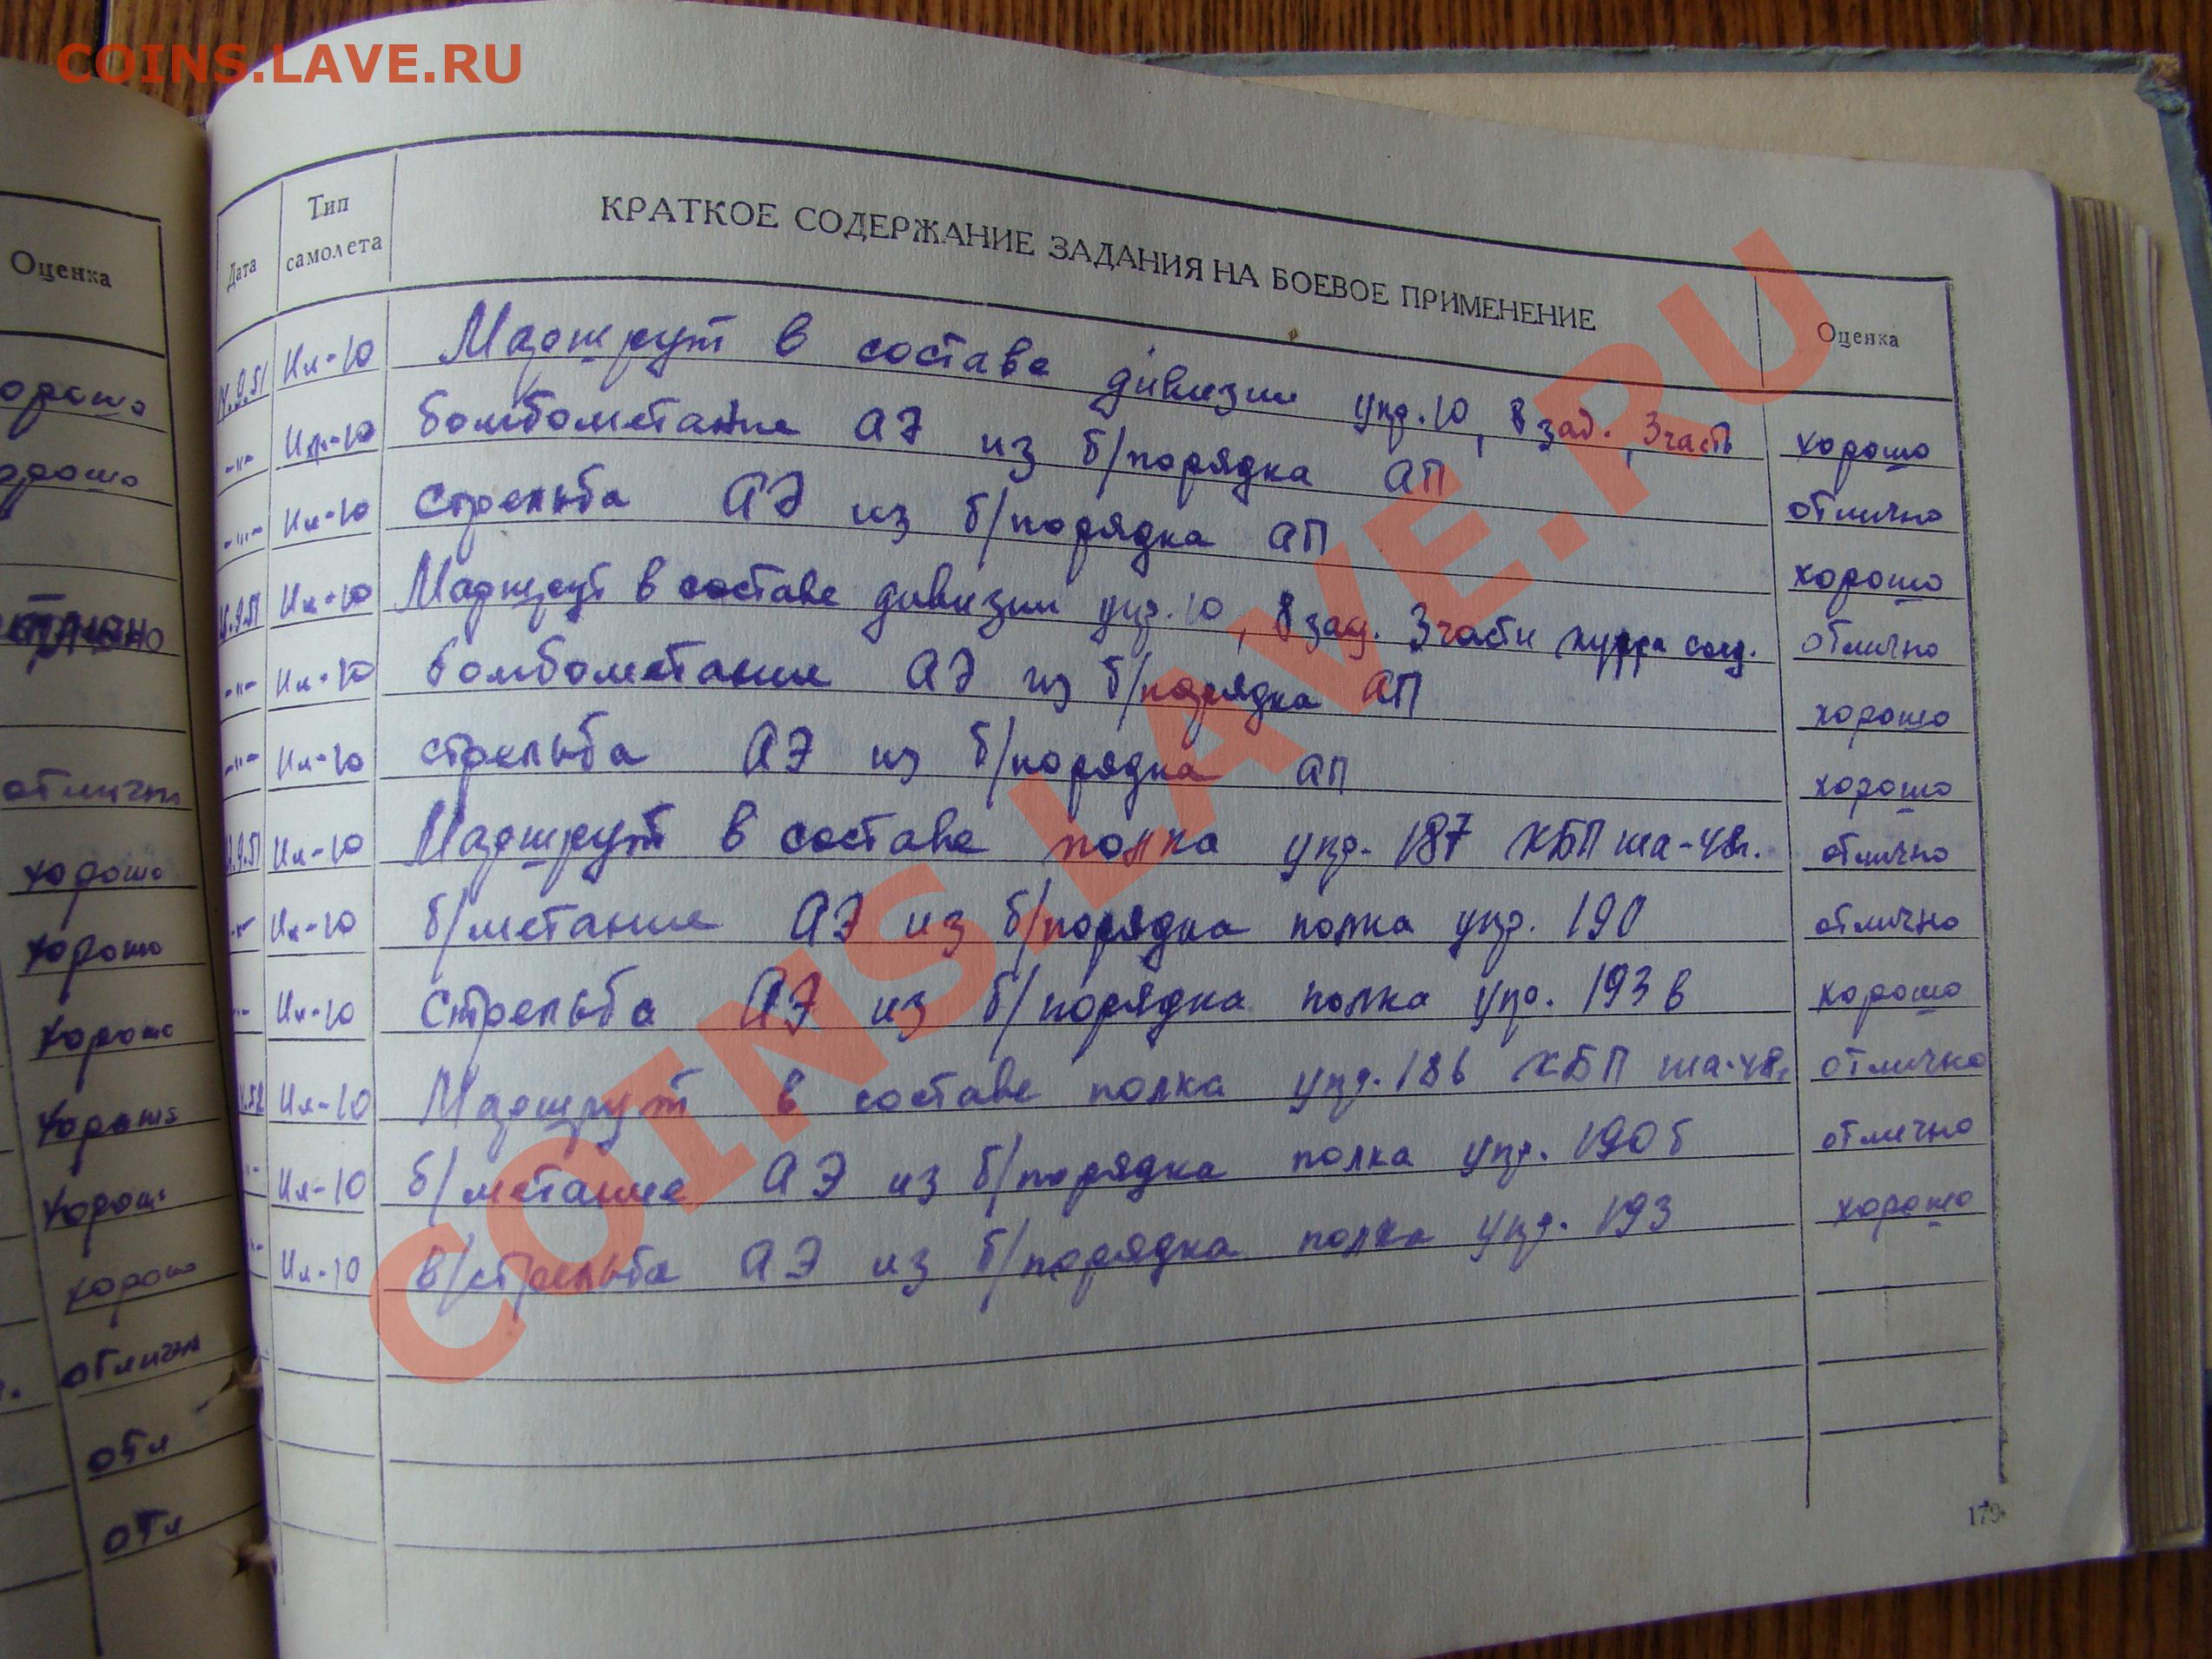 COINS.LAVE.RU
Оценка
хорошо
хорошо
отлично
отлично
хорошо
хорошо
хорошо
хорошо
хорошо
хорошо
отлично
отл
отл
Дата Тип самолета КРАТКОЕ СОДЕРЖАНИЕ ЗАДАНИЯ НА БОЕВОЕ ПРИМЕНЕНИЕ Оценка
9.51 Ил-10 Маршрут в составе дивизии упр. 10, 8 зад., 3 часть хорошо
-"- Ил-10 бомбометание АЭ из б/порядка АП отлично
-"- Ил-10 Стрельба АЭ из б/порядка АП хорошо
9.51 Ил-10 Маршрут в составе дивизии упр. 10, 8 зад. 3 части отлично
-"- Ил-10 бомбометание АЭ из б/порядка АП хорошо
-"- Ил-10 стрельба АЭ из б/порядка АП хорошо
9.51 Ил-10 Маршрут в составе полка упр. 187 КБП ша-48г. отлично
-"- Ил-10 б/метание АЭ из б/порядка полка упр. 190 отлично
-"- Ил-10 Стрельба АЭ из б/порядка полка упр. 193 в хорошо
52 Ил-10 Маршрут в составе полка упр. 186 КБП ша-48г отлично
-"- Ил-10 б/метание АЭ из б/порядка полка упр. 190 б отлично
-"- Ил-10 в/стрельба АЭ из б/порядка полка упр. 193 хорошо
179
COINS.LAVE.RU